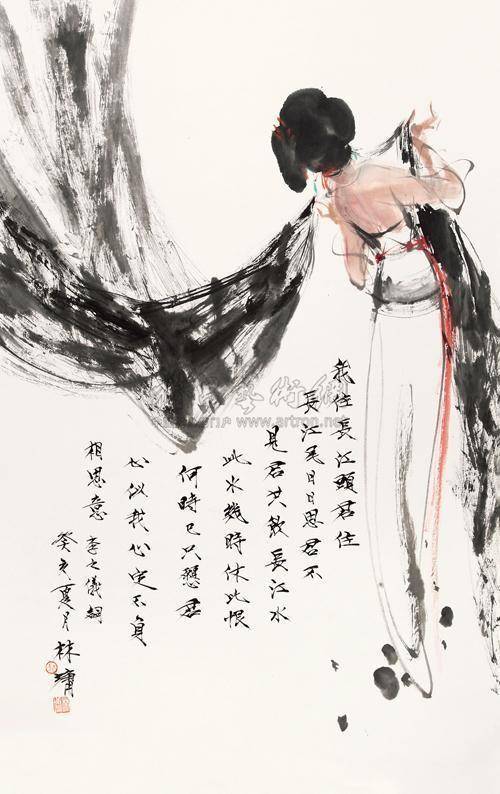 我住長江頭君住
長江尾日日思君不
見君共飲長江水
此水幾時休此恨
何時已只愿君
心似我心定不負
相思意 李之儀詞
癸亥夏月林墉
藝術網
www.artron.net